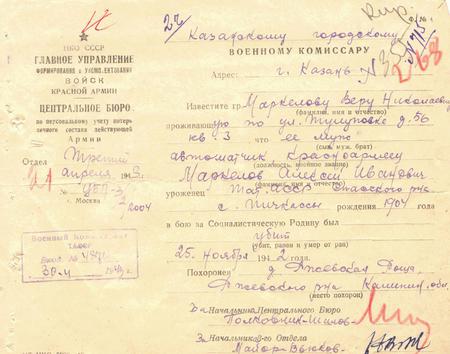 НКО СССР
ГЛАВНОЕ УПРАВЛЕНИЕ
ФОРМИРОВАНИЯ и УКОМПЛЕКТОВАНИЯ
ВОЙСК
КРАСНОЙ АРМИИ
ЦЕНТРАЛЬНОЕ БЮРО
по персональному учету потерь
личного состава действующей
Армии
Отдел Третий
21 апреля
г. Москва
2004
Военный Комиссариат
ТАССР
27
Казанскому городскому
ВОЕННОМУ КОМИССАРУ
Адрес: г. Казань
268
Известите гр. Маркелову Веру Николаевну
(фамилия, имя и отчество)
проживающую по ул. Тулуповке д. 56
кв 3 что ее муж
(сын, муж, брат)
автоматчик красноармеец
(должность, военное звание)
Маркелов Алексей Иванович
(фамилия, имя и отчество)
уроженец Тат. ССР Спасского р-на
рождения 1904 года
в бою за Социалистическую Родину был
убит
(убит, ранен и умер от ран)
25 ноября 1942
Похоронен д. Ржевская Роща
Ржевского р-на Калинин. обл.
(место похорон)
Начальника Центрального Бюро
Полковник - Шилов
Начальника 3-го Отдела
Майор - Вьюков